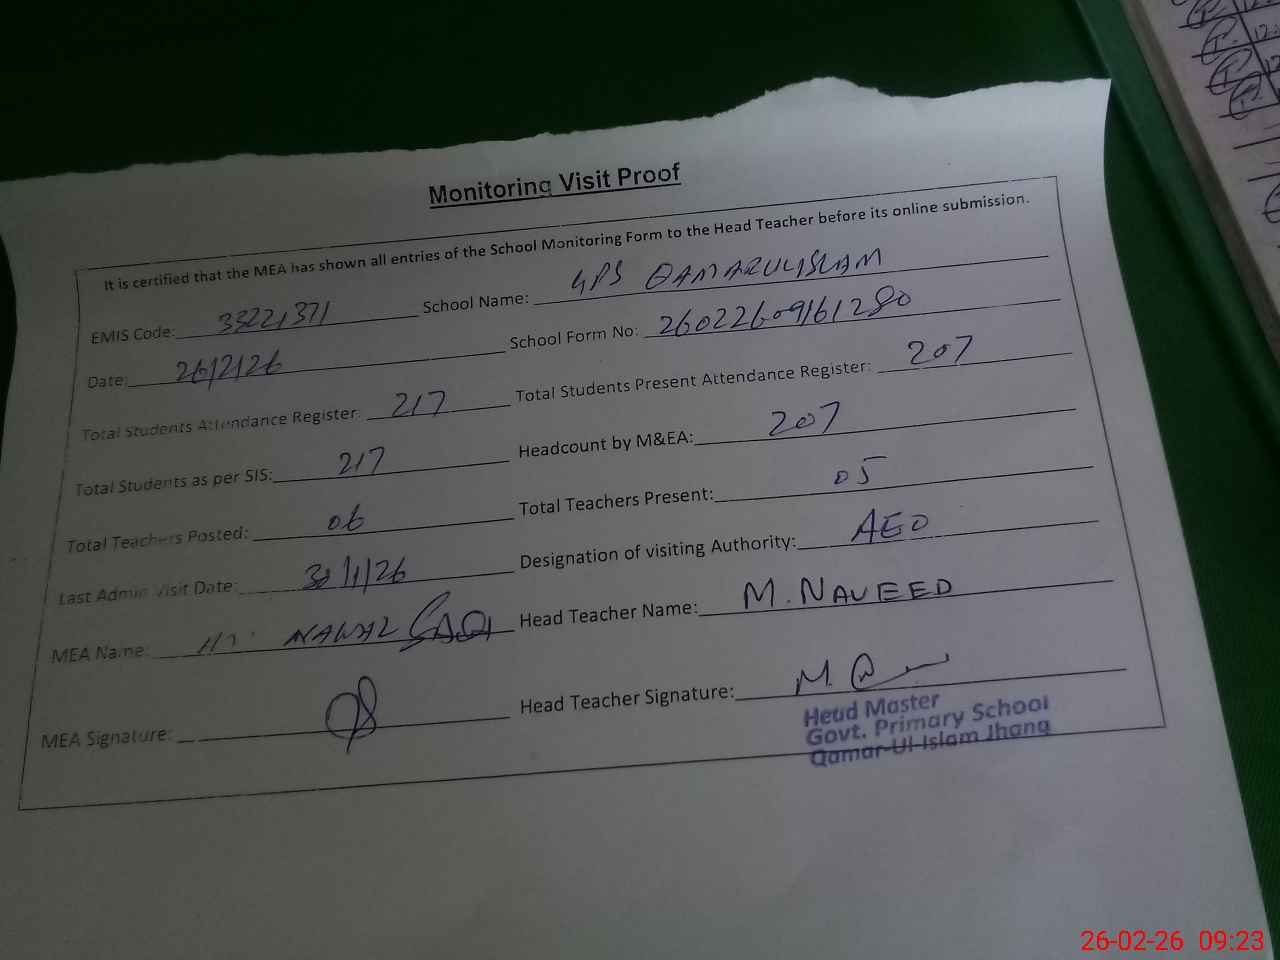 Monitoring Visit Proof
It is certified that the MEA has shown all entries of the School Monitoring Form to the Head Teacher before its online submission.
EMIS Code: 33221371 School Name: GPS QAMARULISLAM
Date: 26/2/26 School Form No: 26022609161280
Total Students Attendance Register: 217 Total Students Present Attendance Register: 207
Total Students as per SIS: 217 Headcount by M&EA: 207
Total Teachers Posted: 06 Total Teachers Present: 05
Last Admin Visit Date: /1/26 Designation of visiting Authority: AEO
MEA Name: NAWAZ Head Teacher Name: M. NAVEED
MEA Signature: Head Teacher Signature: M.
Head Master
Govt. Primary School
Qamar-Ul-Islam Jhang
26-02-26 09:23